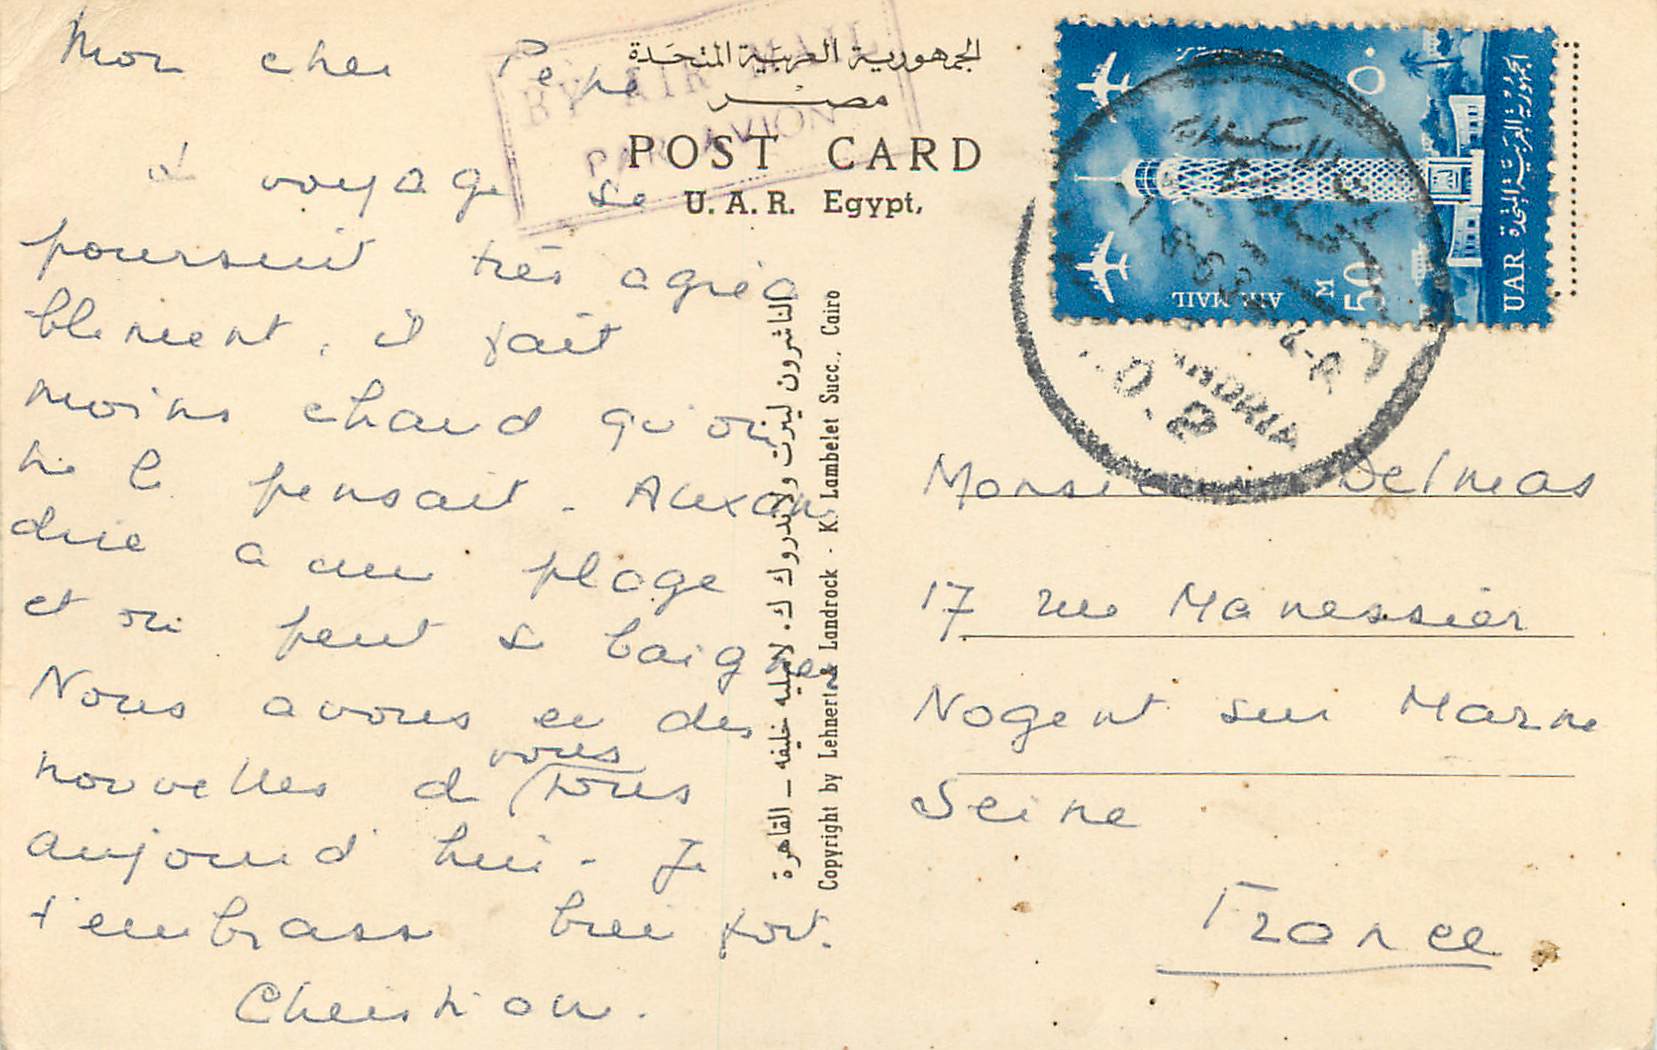 Mon cher Pépé
Le voyage se
poursuit très agréa
blement, il fait
moins chaud qu'on
ne le pensait. Alexan
drie a une plage
et on peut se baigner
Nous avons eu des
vous
nouvelles de tous
aujourd'hui - Je
t'embrasse bien fort.
Christian.
BY AIR MAIL
PAR AVION
الجمهورية العربية المتحدة
مصر
POST CARD
U. A. R. Egypt,
الناشرون لينرت ولاندروك ك. لامبليه خليفه – القاهرة
Copyright by Lehnert & Landrock - K. Lambelet Succ., Cairo
٥٠
50 M
AIR MAIL
UAR الجمهورية العربية المتحدة
Monsieur Delmas
17 rue Manessier
Nogent sur Marne
Seine
France